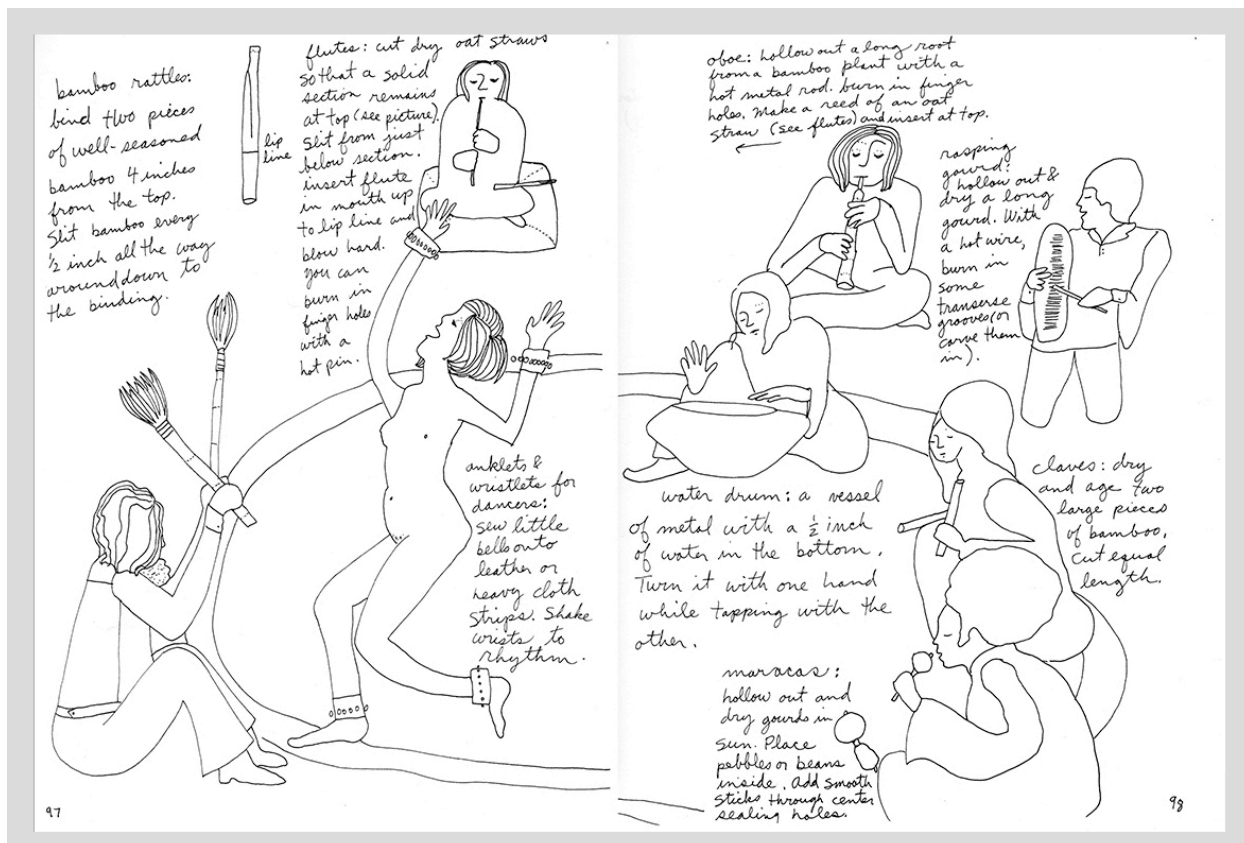 bamboo rattles:
bind two pieces
of well-seasoned
bamboo 4 inches
from the top.
Slit bamboo every
½ inch all the way
around down to
the binding.
lip
line
flutes: cut dry oat straws
so that a solid
section remains
at top (see picture).
Slit from just
below section.
insert flute
in mouth up
to lip line and
blow hard.
You can
burn in
finger holes
with a
hot pin.
anklets &
wristlets for
dancers:
sew little
bells onto
leather or
heavy cloth
strips. Shake
wrists to
rhythm.
97
oboe: hollow out a long root
from a bamboo plant with a
hot metal rod. burn in finger
holes. Make a reed of an oat
straw (see flutes) and insert at top.
rasping
gourd:
hollow out &
dry a long
gourd. With
a hot wire,
burn in
some
transerse
grooves (or
carve them
in).
water drum: a vessel
of metal with a ½ inch
of water in the bottom.
Turn it with one hand
while tapping with the
other.
claves: dry
and age two
large pieces
of bamboo.
Cut equal
length.
maracas:
hollow out and
dry gourds in
sun. Place
pebbles or beans
inside. Add smooth
sticks through center
sealing holes.
98